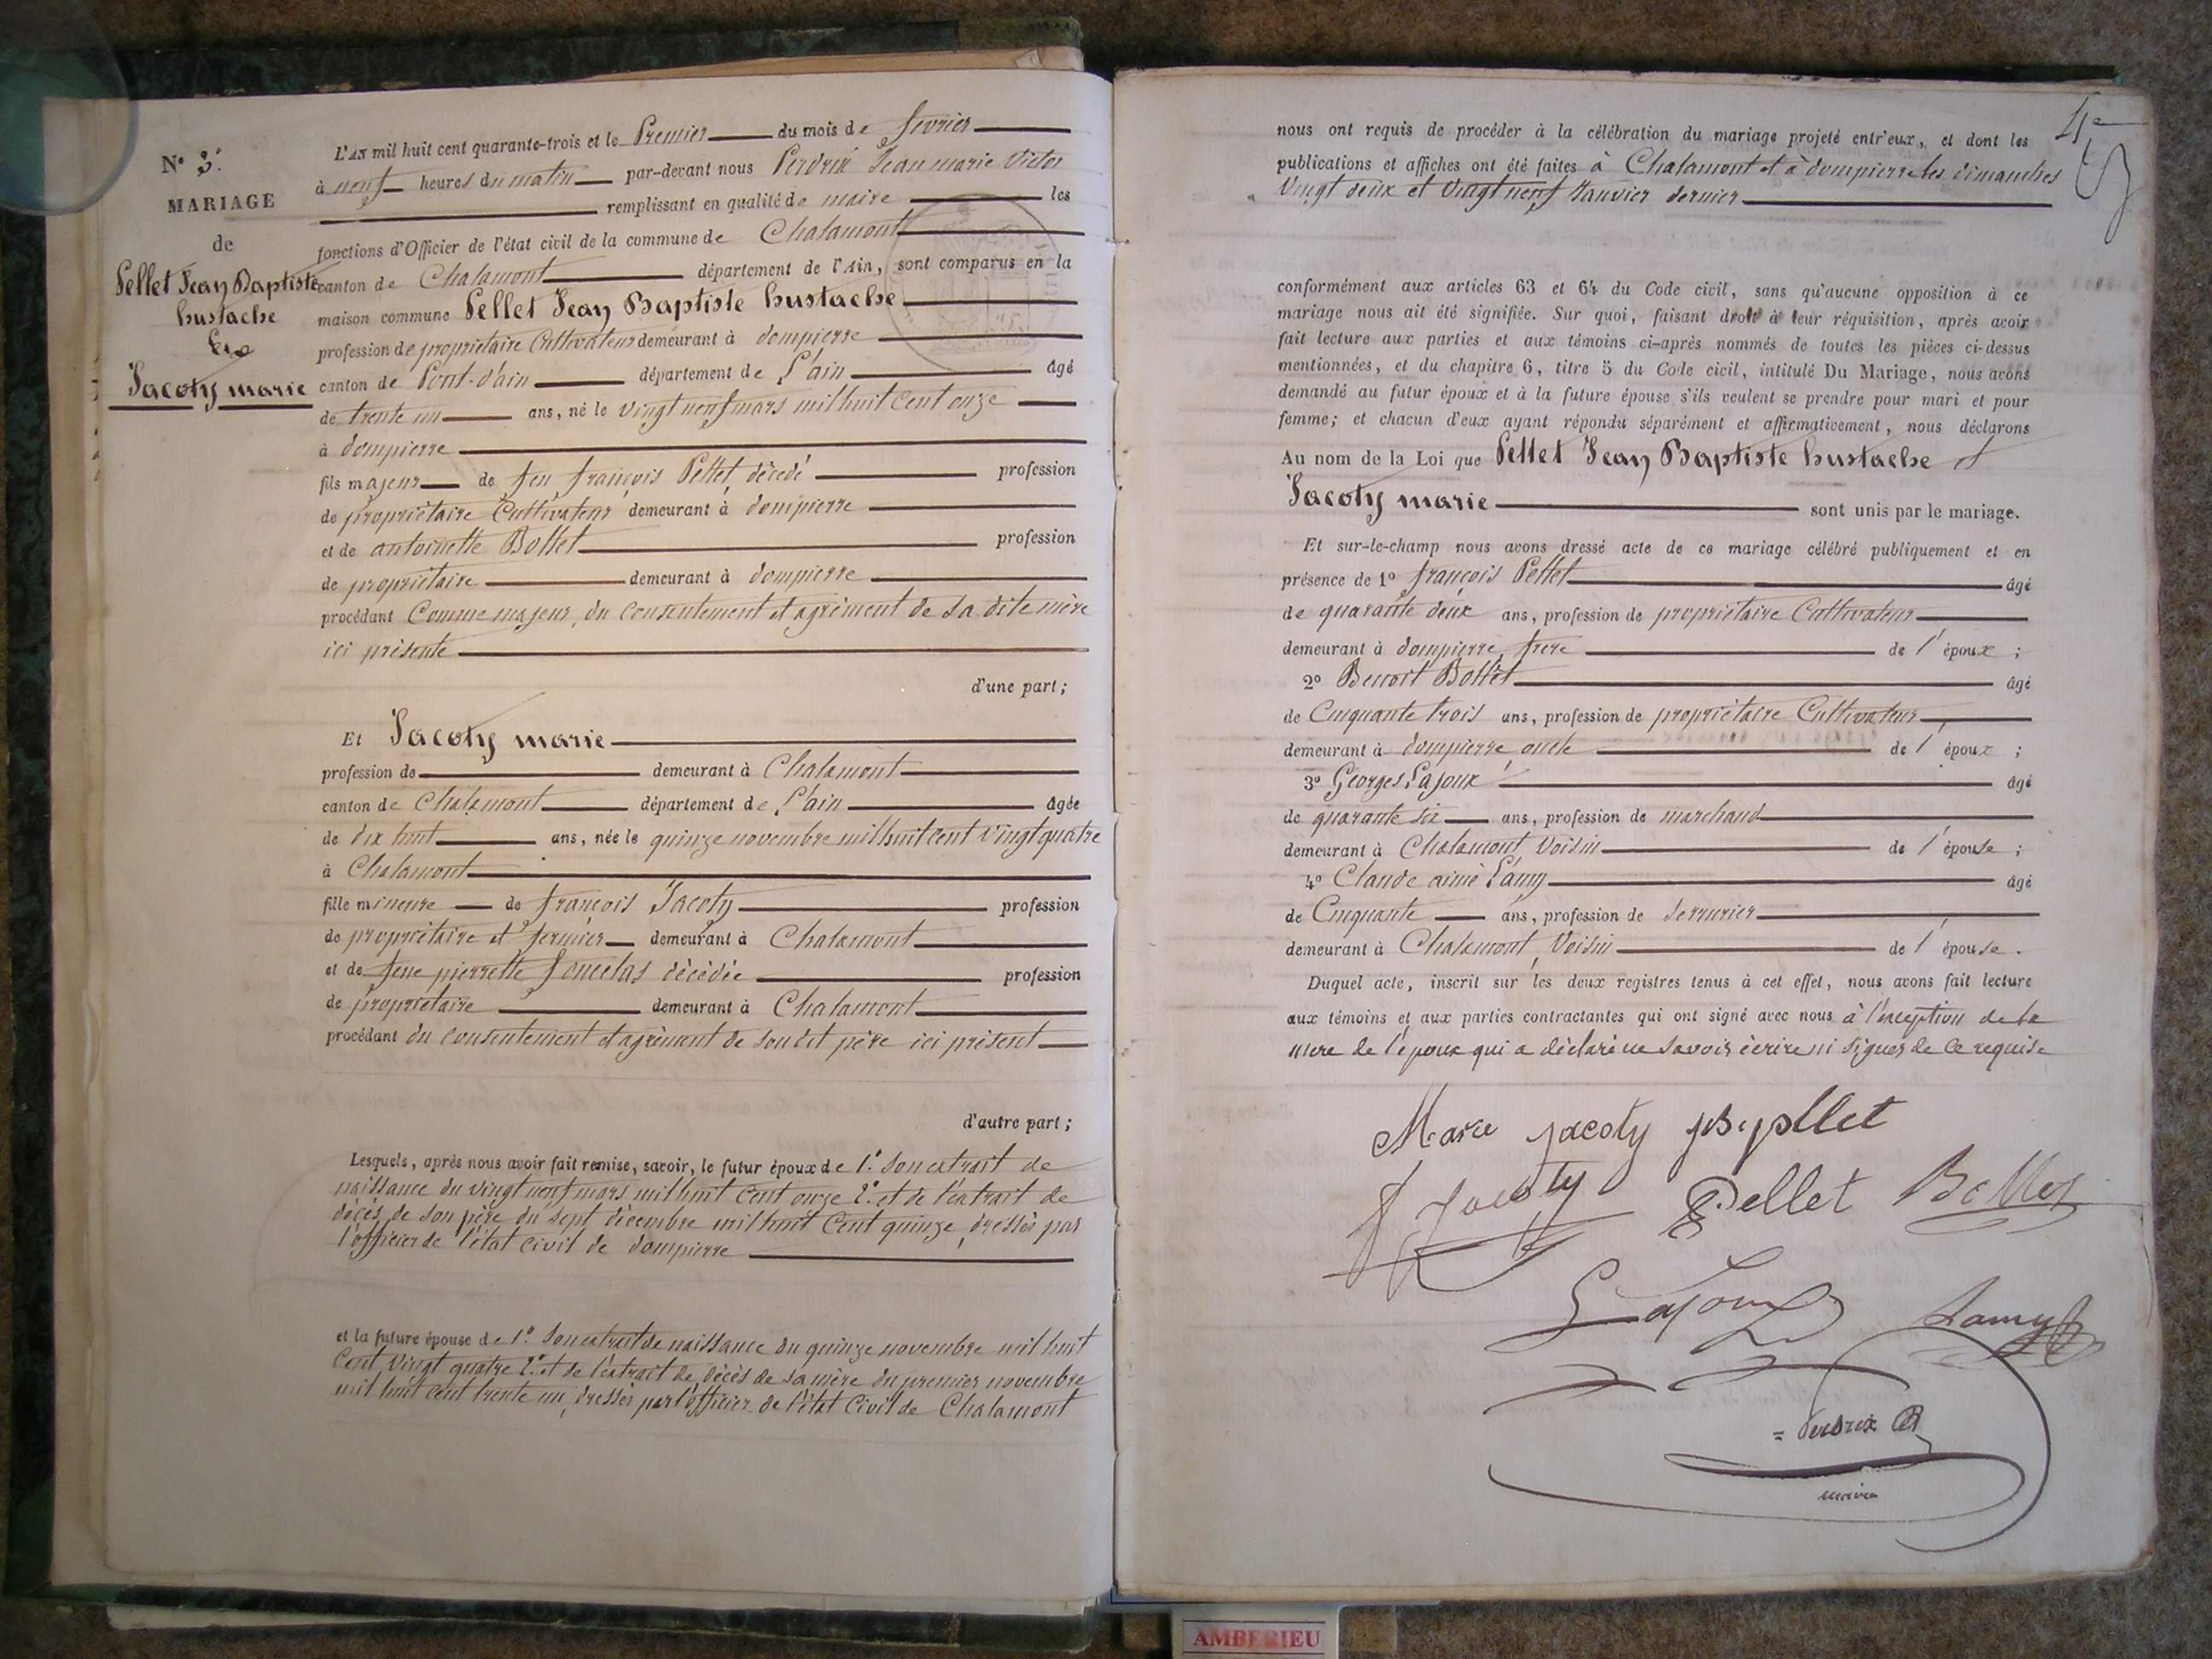 N° 3.
MARIAGE
de
Pellet Jean Baptiste
Eustache
Et
Jacoty marie
L'AN mil huit cent quarante-trois et le Premier du mois de fevrier
à neuf heures du matin par-devant nous Perdrix Jean marie Victor
remplissant en qualité de maire les
fonctions d'Officier de l'état civil de la commune de Chalamont
canton de Chalamont département de l'Ain, sont comparus en la
maison commune Pellet Jean Baptiste Eustache
profession de propriétaire Cultivateur demeurant à dompierre
canton de Pont-d'ain département de L'ain âgé
de trente un ans, né le vingt neuf mars mil huit Cent onze
à dompierre
fils majeur de feu françois Pellet, décédé profession
de propriétaire Cultivateur demeurant à dompierre
et de antoinette Bollet profession
de propriétaire demeurant à dompierre
procédant Comme majeur, du consentement et agrément de sa dite mère
ici présente
d'une part;
Et Jacoty marie
profession de demeurant à Chalamont
canton de Chalamont département de L'ain âgée
de dix huit ans, née le quinze novembre mil huit Cent vingt quatre
à Chalamont
fille mineure de françois Jacoty profession
de propriétaire et fermier demeurant à Chalamont
et de feue pierrette décédée profession
de propriétaire demeurant à Chalamont
procédant du consentement et agrément de son dit père ici présent
d'autre part;
Lesquels, après nous avoir fait remise, savoir, le futur époux de 1.° son extrait de
naissance du vingt neuf mars mil huit Cent onze 2.° et de l'extrait de
décès de son père du sept décembre mil huit Cent quinze, dressés par
l'officier de l'état Civil de dompierre
et la future épouse de 1.° son extrait de naissance du quinze novembre mil huit
Cent vingt quatre 2.° et de l'extrait de décès de sa mère du premier novembre
mil huit cent trente un, dressés par l'officier de l'état Civil de Chalamont
nous ont requis de procéder à la célébration du mariage projeté entr'eux, et dont les
publications et affiches ont été faites à Chalamont et à dompierre les dimanches
Vingt deux et Vingt neuf Janvier dernier
conformément aux articles 63 et 64 du Code civil, sans qu'aucune opposition à ce
mariage nous ait été signifiée. Sur quoi, faisant droit à leur réquisition, après avoir
fait lecture aux parties et aux témoins ci-après nommés de toutes les pièces ci-dessus
mentionnées, et du chapitre 6, titre 5 du Code civil, intitulé Du Mariage, nous avons
demandé au futur époux et à la future épouse s'ils veulent se prendre pour mari et pour
femme; et chacun d'eux ayant répondu séparément et affirmativement, nous déclarons
Au nom de la Loi que Pellet Jean Baptiste Eustache et
Jacoty marie sont unis par le mariage.
Et sur-le-champ nous avons dressé acte de ce mariage célébré publiquement et en
présence de 1° françois Pellet âgé
de quarante deux ans, profession de propriétaire Cultivateur
demeurant à dompierre, frère de l'époux;
2° Benoit Bollet âgé
de Cinquante trois ans, profession de propriétaire Cultivateur
demeurant à dompierre, oncle de l'époux;
3° Georges Lajoux âgé
de quarante six ans, profession de marchand
demeurant à Chalamont, Voisin de l'épouse;
4° Claude aimé Lamy âgé
de Cinquante ans, profession de Serrurier
demeurant à Chalamont, Voisin de l'épouse.
Duquel acte, inscrit sur les deux registres tenus à cet effet, nous avons fait lecture
aux témoins et aux parties contractantes qui ont signé avec nous à l'exception de la
mere de l'époux qui a déclaré ne savoir écrire ni signer de ce requise
Marie jacoty JB pellet
Jacoty Pellet Bollet
Lajoux Lamy
Perdrix
maire
AMBERIEU